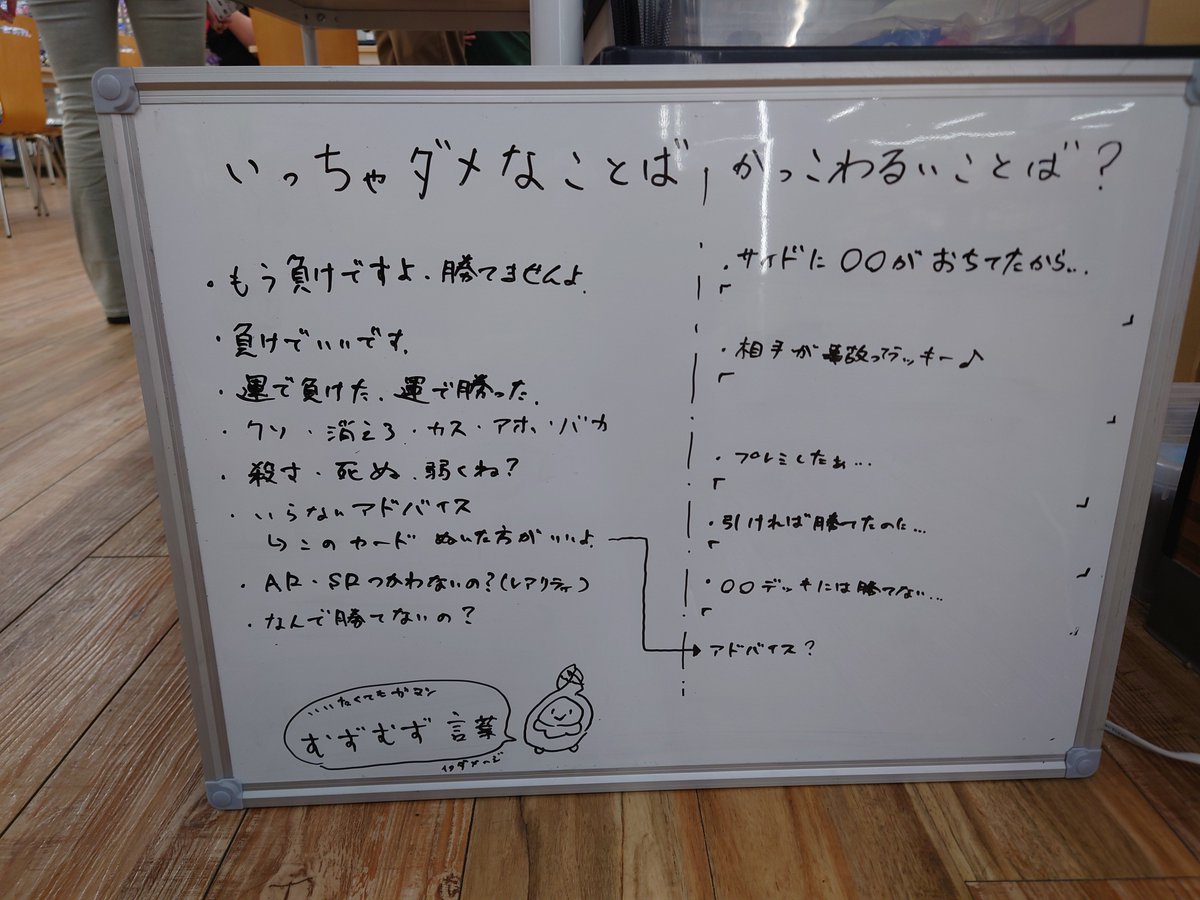 いっちゃダメなことば
・もう負けですよ、勝てませんよ。
・負けでいいです。
・運で負けた、運で勝った。
・クソ・消えろ・カス・アホ・バカ
・殺す・死ぬ、弱くね？
・いらないアドバイス
↳このカードぬいた方がいいよ。
・AR・SRつかわないの？(レアリティ)
・なんで勝てないの？
いいたくてもガマン
むずむず言葉
かっこわるいことば？
・サイドに〇〇がおちてたから…
「　」
・相手が事故ってラッキー♪
「　」
・プレミしたぁ…
「　」
・引ければ勝てたのに…
「　」
・〇〇デッキには勝てない…
「　」
アドバイス？